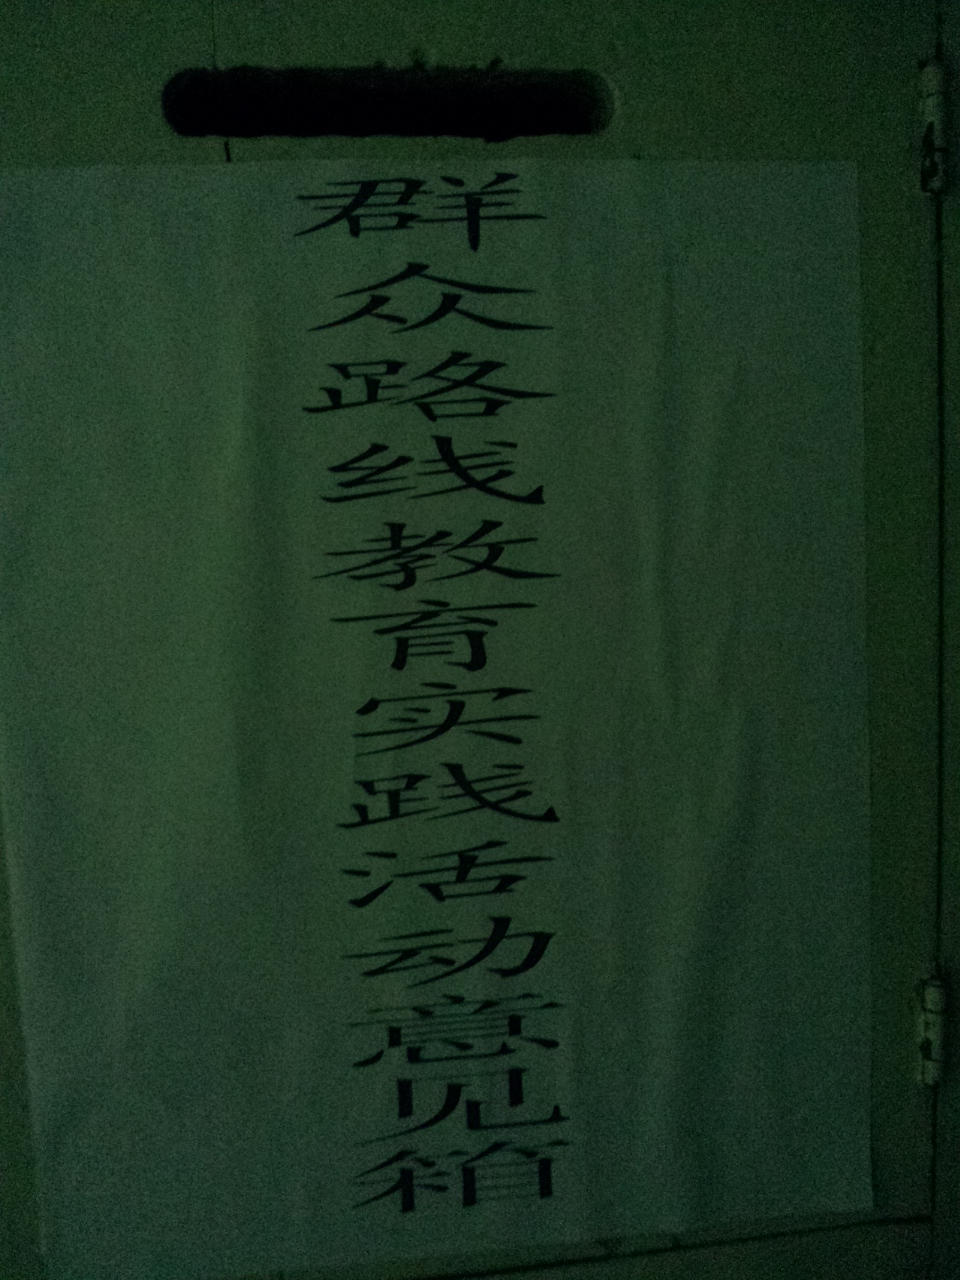 群众路线教育实践活动意见箱